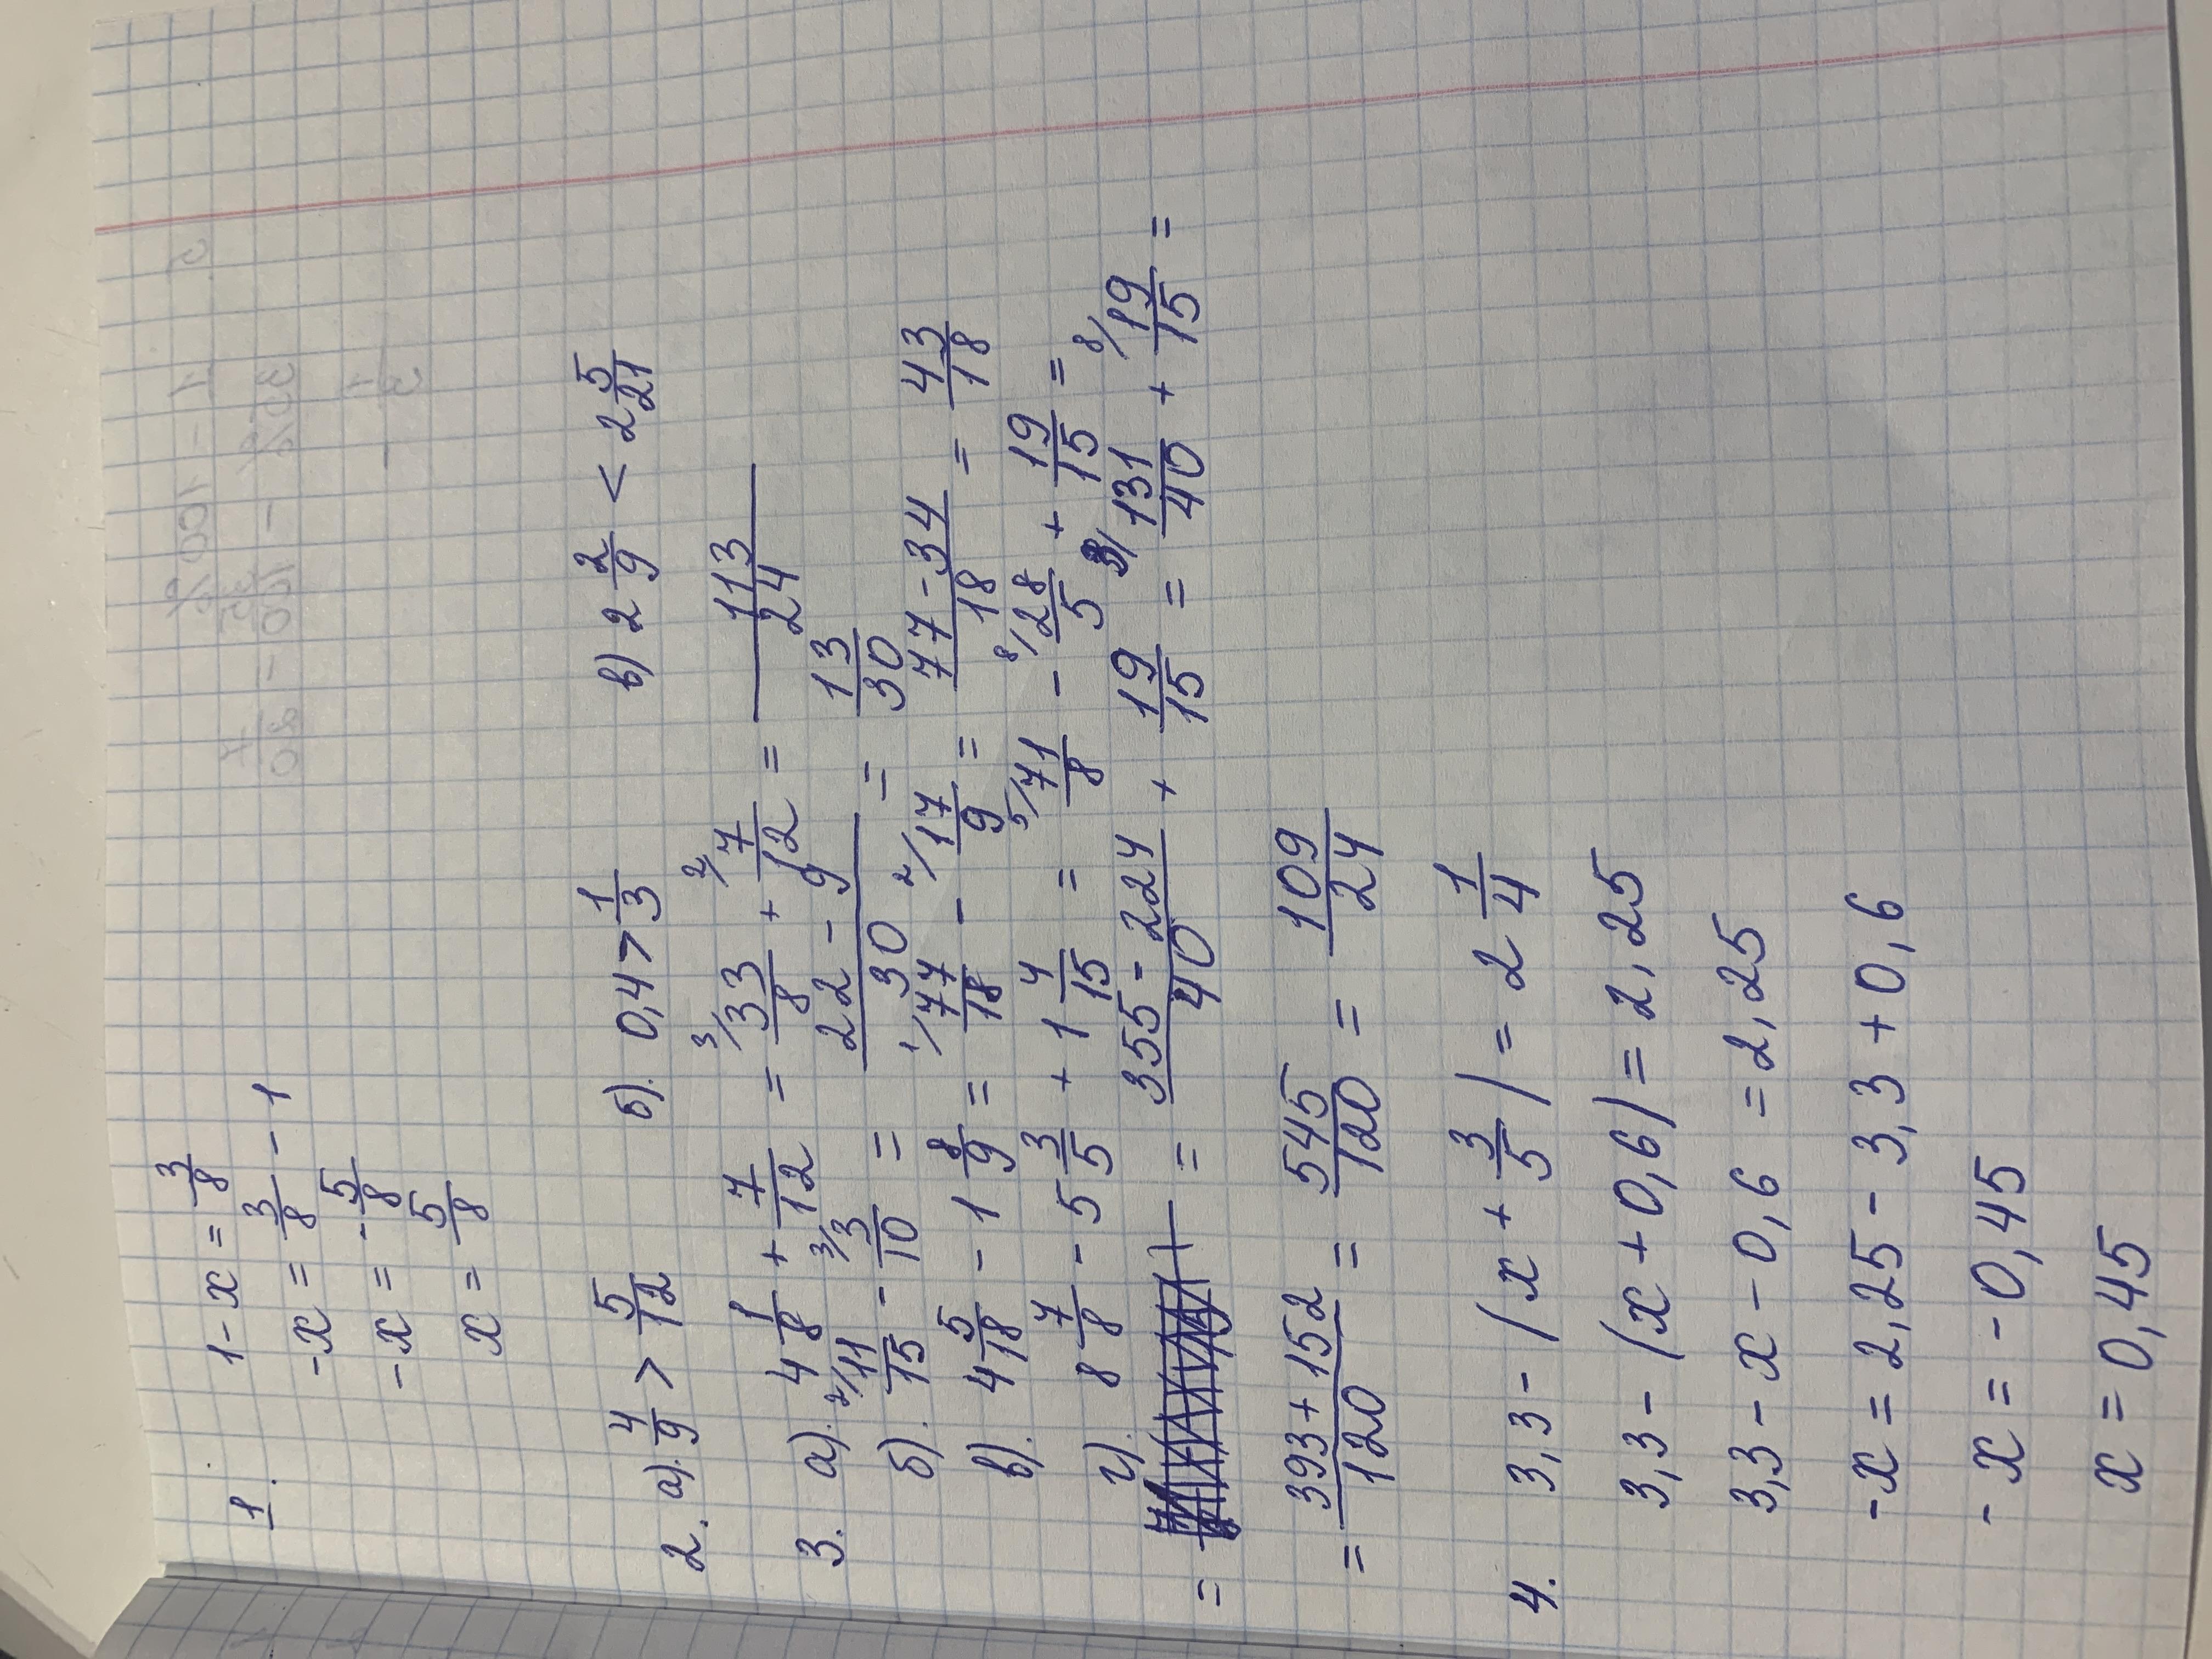 1. 1 - x = 3/8
-x = 3/8 - 1
-x = -5/8
x = 5/8
2. а). 4/9 > 5/12 б). 0,4 > 1/3 в) 2 2/9 < 2 5/21
3. а). 4 1/8 + 7/12 = 3/ 33/8 + 2/ 7/12 = 113/24
б). 2/ 11/15 - 3/ 3/10 = 22 - 9/30 = 13/30
в). 4 5/18 - 1 8/9 = 1/ 77/18 - 2/ 17/9 = 77 - 34/18 = 43/18
г). 8 7/8 - 5 3/5 + 1 4/15 = 5/ 71/8 - 8/ 28/5 + 19/15 =
= = 355 - 224/40 + 19/15 = 3/ 131/40 + 8/ 19/15 =
= 393 + 152/120 = 545/120 = 109/24
4. 3,3 - (x + 3/5) = 2 1/4
3,3 - (x + 0,6) = 2,25
3,3 - x - 0,6 = 2,25
-x = 2,25 - 3,3 + 0,6
-x = -0,45
x = 0,45